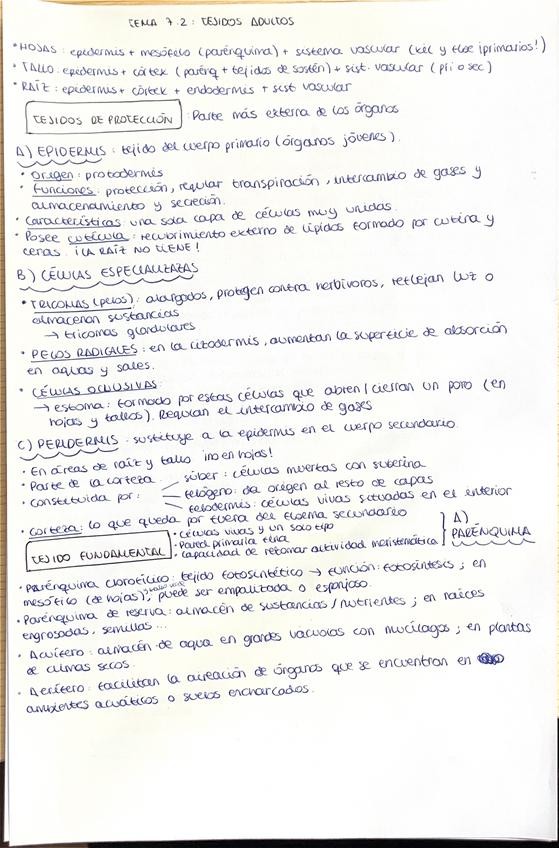 TEMA 7.2: TEJIDOS ADULTOS
• HOJAS: epidermis + mesófilo (parénquima) + sistema vascular (xil y floe ¡primarios!)
• TALLO: epidermis + córtex (parénq + tejidos de sostén) + sist. vascular (pri o sec)
• RAÍZ: epidermis + córtex + endodermis + sist vascular
TEJIDOS DE PROTECCIÓN: Parte más externa de los órganos
A) EPIDERMIS: tejido del cuerpo primario (órganos jóvenes).
• Origen: protodermis
• Funciones: protección, regular transpiración, intercambio de gases y
almacenamiento y secreción.
• Características: una sola capa de células muy unidas.
• Posee cutícula: recubrimiento externo de lípidos formado por cutina y
ceras. ¡LA RAÍZ NO TIENE!
B) CÉLULAS ESPECIALIZAZAS
• TRICOMAS (pelos): alargados, protegen contra herbívoros, reflejan luz o
almacenan sustancias
→ tricomas glandulares
• PELOS RADICALES: en la rizodermis, aumentan la superficie de absorción
en aguas y sales.
• CÉLULAS OCLUSIVAS:
→ estoma: formado por estas células que abren/cierran un poro (en
hojas y tallos). Regulan el intercambio de gases
C) PERIDERMIS: sustituye a la epidermis en el cuerpo secundario.
• En áreas de raíz y tallo ¡no en hojas!
• Parte de la corteza
• Constituida por: súber: células muertas con suberina
felógeno: da origen al resto de capas
felodermis: células vivas situadas en el interior
• Corteza: lo que queda por fuera del floema secundario
TEJIDO FUNDAMENTAL • Células vivas y un solo tipo
• Pared primaria fina
• Capacidad de retomar actividad meristemática
A) PARÉNQUIMA
• Parénquima clorofílico: tejido fotosintético → función: fotosíntesis; en
mesófilo (de hojas); puede ser empalizada o esponjoso.
• Parénquima de reserva: almacén de sustancias/nutrientes; en raíces
engrosadas, semillas...
• Acuífero: almacén de agua en grandes vacuolas con mucílagos; en plantas
de climas secos.
• Aerífero: facilitan la aireación de órganos que se encuentran en
ambientes acuáticos o suelos encharcados.